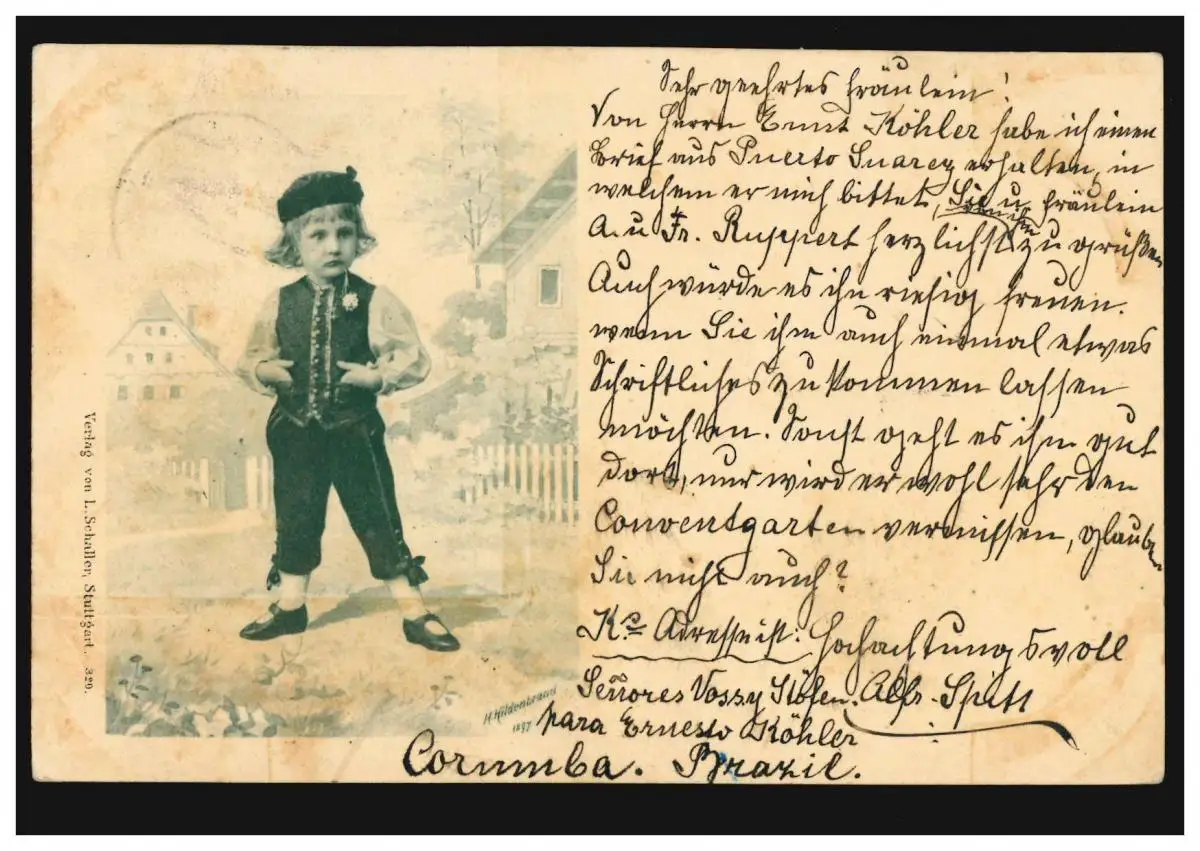 Sehr geehrtes Fräulein!
Von Herrn Ernst Köhler habe ich einen
Brief aus Puerto Suarez erhalten, in
welchem er mich bittet, Sie u. Fräulein
A. u Fr. Ruppert herzlichst zu grüßen
Auch würde es ihn riesig freuen.
wenn Sie ihm auch einmal etwas
Schriftliches zukommen lassen
möchten. Sonst geht es ihm gut
dort, nur wird er wohl sehr den
Conventgarten vermissen, glauben
Sie nicht auch?
Ks Adresse ist: Hochachtungsvoll
Señores Vossy Stöfen. Alfr.
para Ernesto Köhler
Corumba. Brazil.
H. Hildenbrand
1897
Verlag von L. Schaller, Stuttgart. 329.